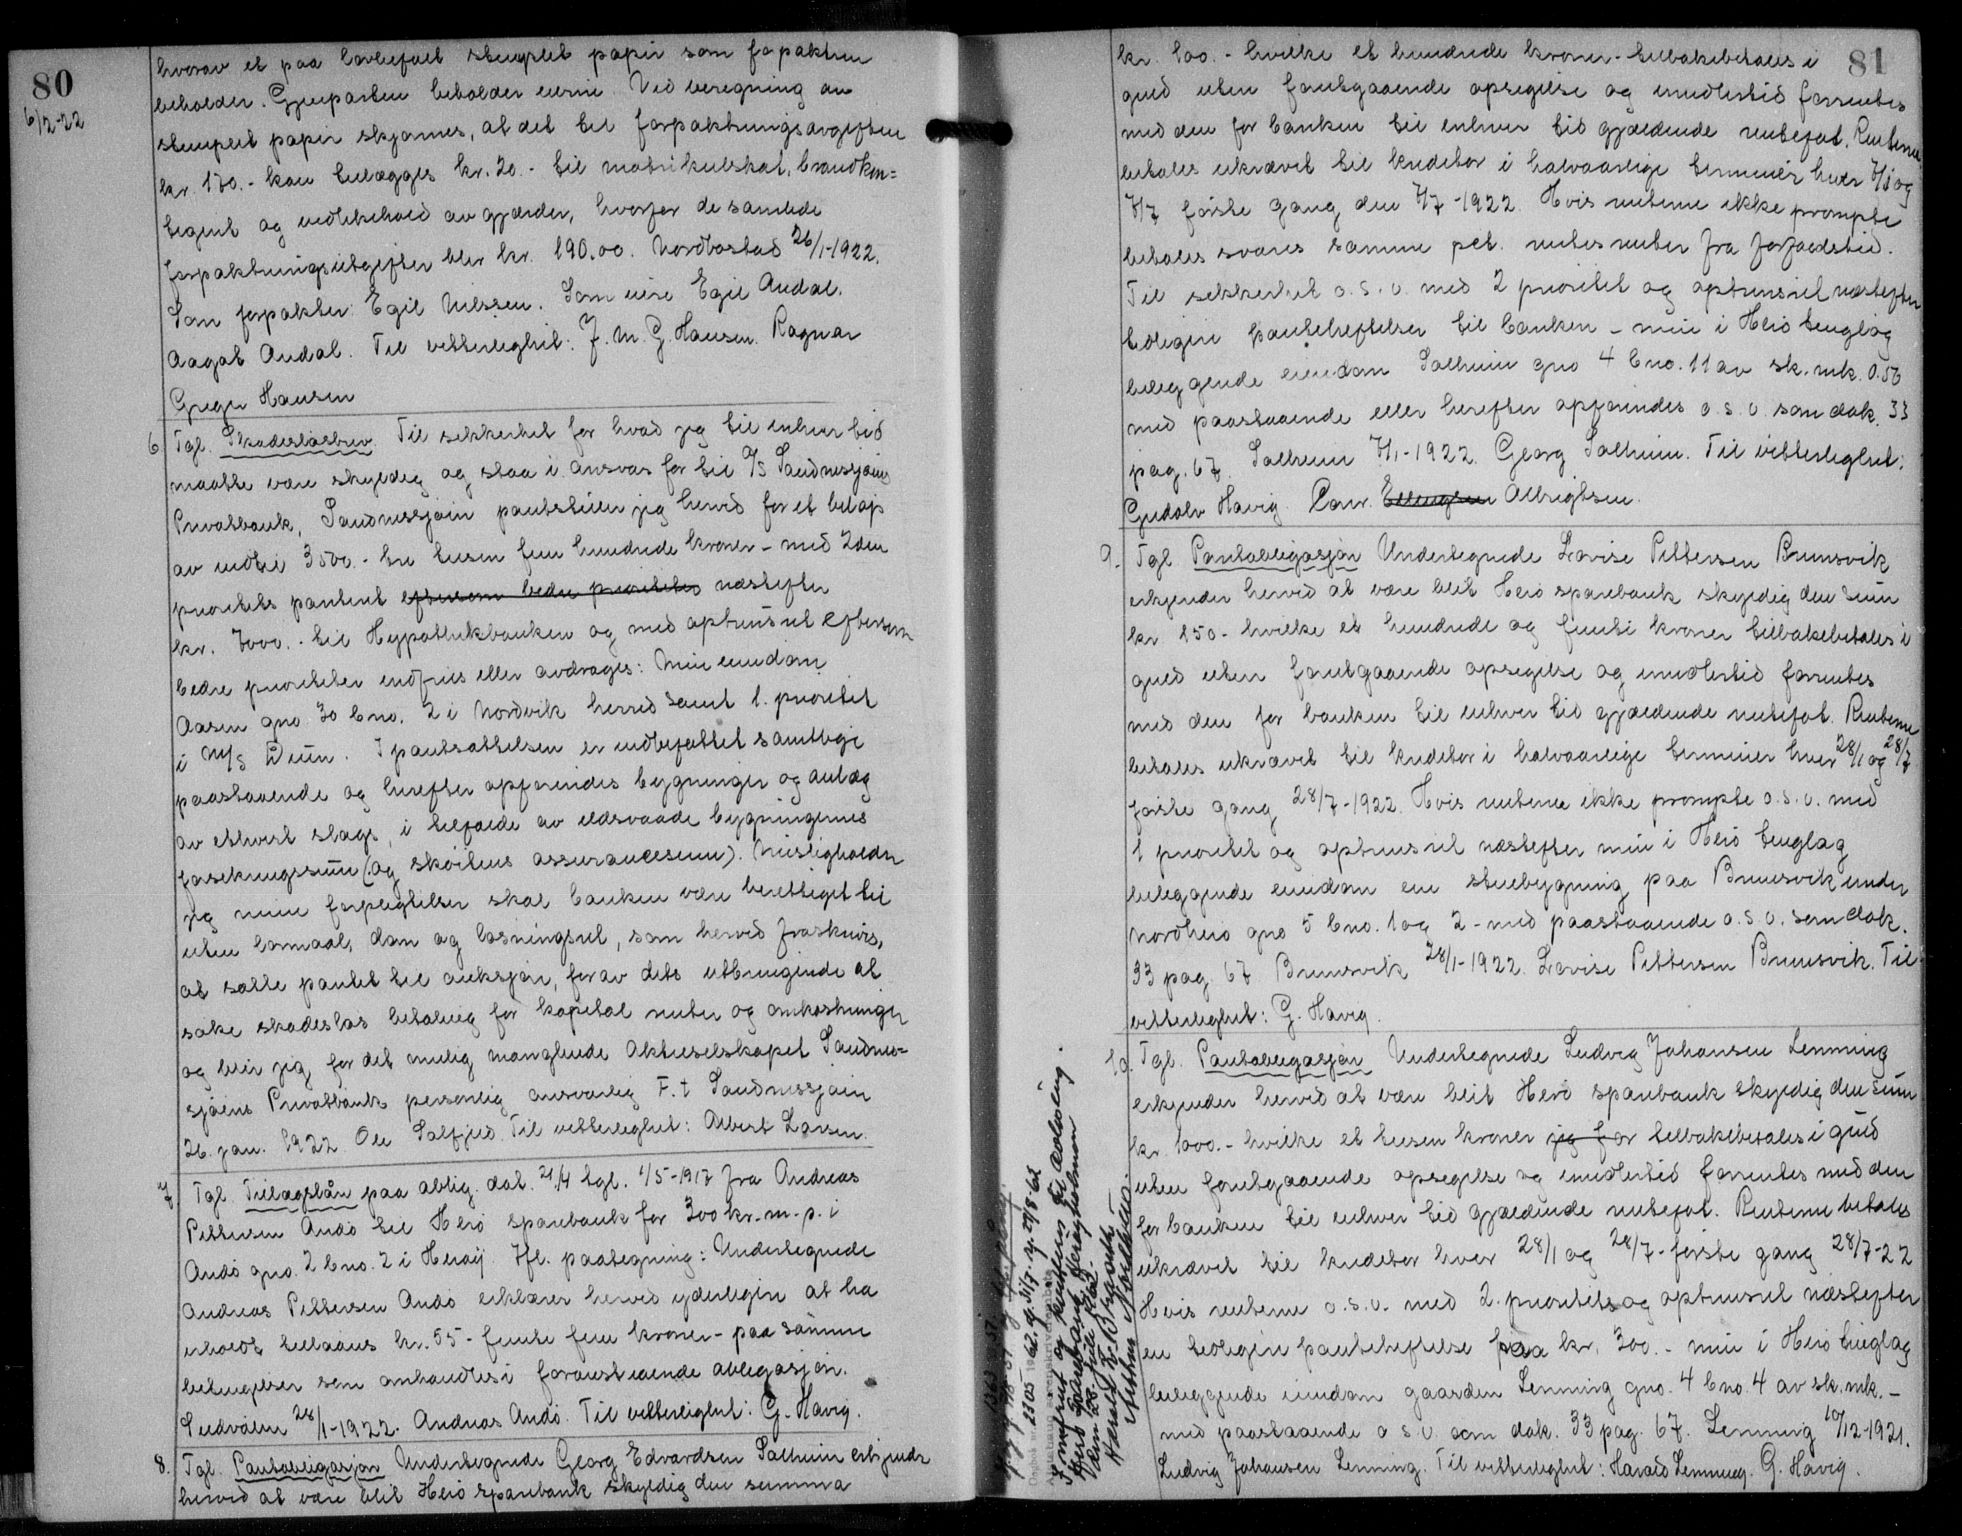 80
6/2-22
hvorav et paa lovbefalt stemplet papir som forpakteren
beholder. Gjenparten beholder eieren. Ved beregning av
stemplet papir skjønnes, at det til forpaktningsavgiften
kr. 170.- kan tillægges kr. 20.- til matrikulskat, brandkon=
tigent og vedlikehold av gjærder, hvorfor de samlede
forpaktningsutgifter blir kr. 190.00. Nordbostad 26/1-1922.
Som forpakter: Egil Nilssen. Som eier Egil Andal.
Aagot Andal. Til vitterlighet: J. M. G. Hansen. Ragnar
Greger Hansen
6 Tgl. Skadesløsbrev. Til sikkerhet for hvad jeg til enhver tid
maatte være skyldig og staa i ansvar for til A/S Sandnessjøens
Privatbank, Sandnessjøen pantstiller jeg herved for et beløp
av indtil 3500.- tre tusen fem hundrede kroner - med 2den
prioritets panteret eftersom bedre prioriteter næstefter
kr. 7000.- til Hypothekbanken og med oprykningsret eftersom
bedre prioriteter indfries eller avdrages: Min eiendom
Aasen gno 30 bno. 2 i Nordvik herred samt 1. prioritet
i M/S Deun. I pantsættelsen er indbefattet samtlige
paastaaende og herefter opførendes bygninger og anlæg
av ethvert slags, i tilfælde av ildsvaade bygningernes
forsikringssum (og skøitens assurancesum). Misligholder
jeg mine forpligtelser skal banken være berettiget til
uten lovmaal, dom og løsningsret, som herved fraskrives,
at sælle pantet til auksjon, for av dets utbringende at
søke skadesløs betaling for kapital renter og omkostninger
og blir jeg for det mulig manglende Aktieselskapet Sandnes-
sjøens Privatbank personlig ansvarlig F. t Sandnessjøen
26. jan. 1922 Ole Salfjed. Til vitterlighet: Albert Larsen.
7 Tgl. Tillægslån paa oblig. dat. 21/4 tgl. 1/5-1917 fra Andreas
Pettersen Andø til Herø sparebank for 300 kr. m. p. i
Andø gno. 2 bno. 2 i Herøy. Ifl. paategning: Undertegnede
Andreas Pettersen Andø erklærer herved yderligere at ha
erholdt tillaans kr. 55 - femti fem kroner - paa samme
betingelser som omhandles i foranstaaende obligasjon.
28/1-1922. Andreas Andø. Til vitterlighet: G. Havig.
8. Tgl. Pantobligasjon Undertegnede Georg Edvardsen Salhuin erkjender
herved at være blit Herø sparebank skyldig den summa
81
kr. 100.- hvilke et hundrede kroner - tilbakebetales i
guld uten forutgaaende opsigelse og imidlertid forrentes
med den for banken til enhver tid gjældende rentefot. Renterne
betales ukrævet til kreditor i halvaarlige terminer hver 7/1 og
7/7 første gang den 7/7-1922. Hvis renterne ikke prompte
betales svares samme pct. rentesrenter fra forfaldstid.
Til sikkerhet o. s. v. med 2 prioritet og oprykningsret næstefter
tidligere panteheftelser til banken - min i Herø tinglag
beliggende eiendom Salhuin gno 4 bno. 11 av sk. mk. 0.56
med paastaaende eller herefter opførendes o. s. v. som dok. 33
pag. 67. Salhuin 7/1-1922. Georg Salhuin. Til vitterlighet:
Gudolv Havig. Conr. Ellingsen Albrigtsen.
9. Tgl. Pantobligasjon Undertegnede Lovise Pettersen Brunsvik
erkjender herved at være blit Herø sparebank skyldig den sum
kr. 150.- hvilke et hundrede og femti kroner tilbakebetales i
guld uten forutgaaende opsigelse og imidlertid forrentes
med den for banken til enhver tid gjældende rentefot. Renterne
betales ukrævet til kreditor i halvaarlige terminer hver 28/1 og 28/7
første gang 28/7-1922. Hvis renterne ikke prompte o. s. v. med
1 prioritet og oprykningsret næstefter min i Herø tinglag
beliggende eiendom en stuebygning paa Brunsvik under
Nordherø gno 5 bno. 1 og 2 - med paastaaende o. s. v. som dok.
33 pag. 67 Brunsvik 28/1-1922. Lovise Pettersen Brunsvik. Til
vitterlighet: G. Havig.
10. Tgl. Pantobligasjon Undertegnede Ludvig Johansen Lenning
erkjender herved at være blit Herø sparebank skyldig den sum
kr. 1000.- hvilke et tusen kroner jeg for tilbakebetales i guld
uten forutgaaende opsigelse og imidlertid forrentes med den
for banken til enhver tid gjældende rentefot. Renterne betales
ukrævet til kreditor hver 28/1 og 28/7 - første gang 28/7-22
Hvis renterne o. s. v. med 2. prioritets og oprykningsret næstefter
en tidligere panteheftelse paa kr. 300.- min i Herø tinglag
beliggende eiendom gaarden Lenning gno. 4 bno. 4 av sk. mk. -
med paastaaende o s. v. som dok. 33 pag. 67. Lenning 10/12-1921.
Ludvig Johansen Lenning. Til vitterlighet: Harald Lenning. G. Havig.
Innfriet og kvitteres til avlysing.
Herø Sparebank